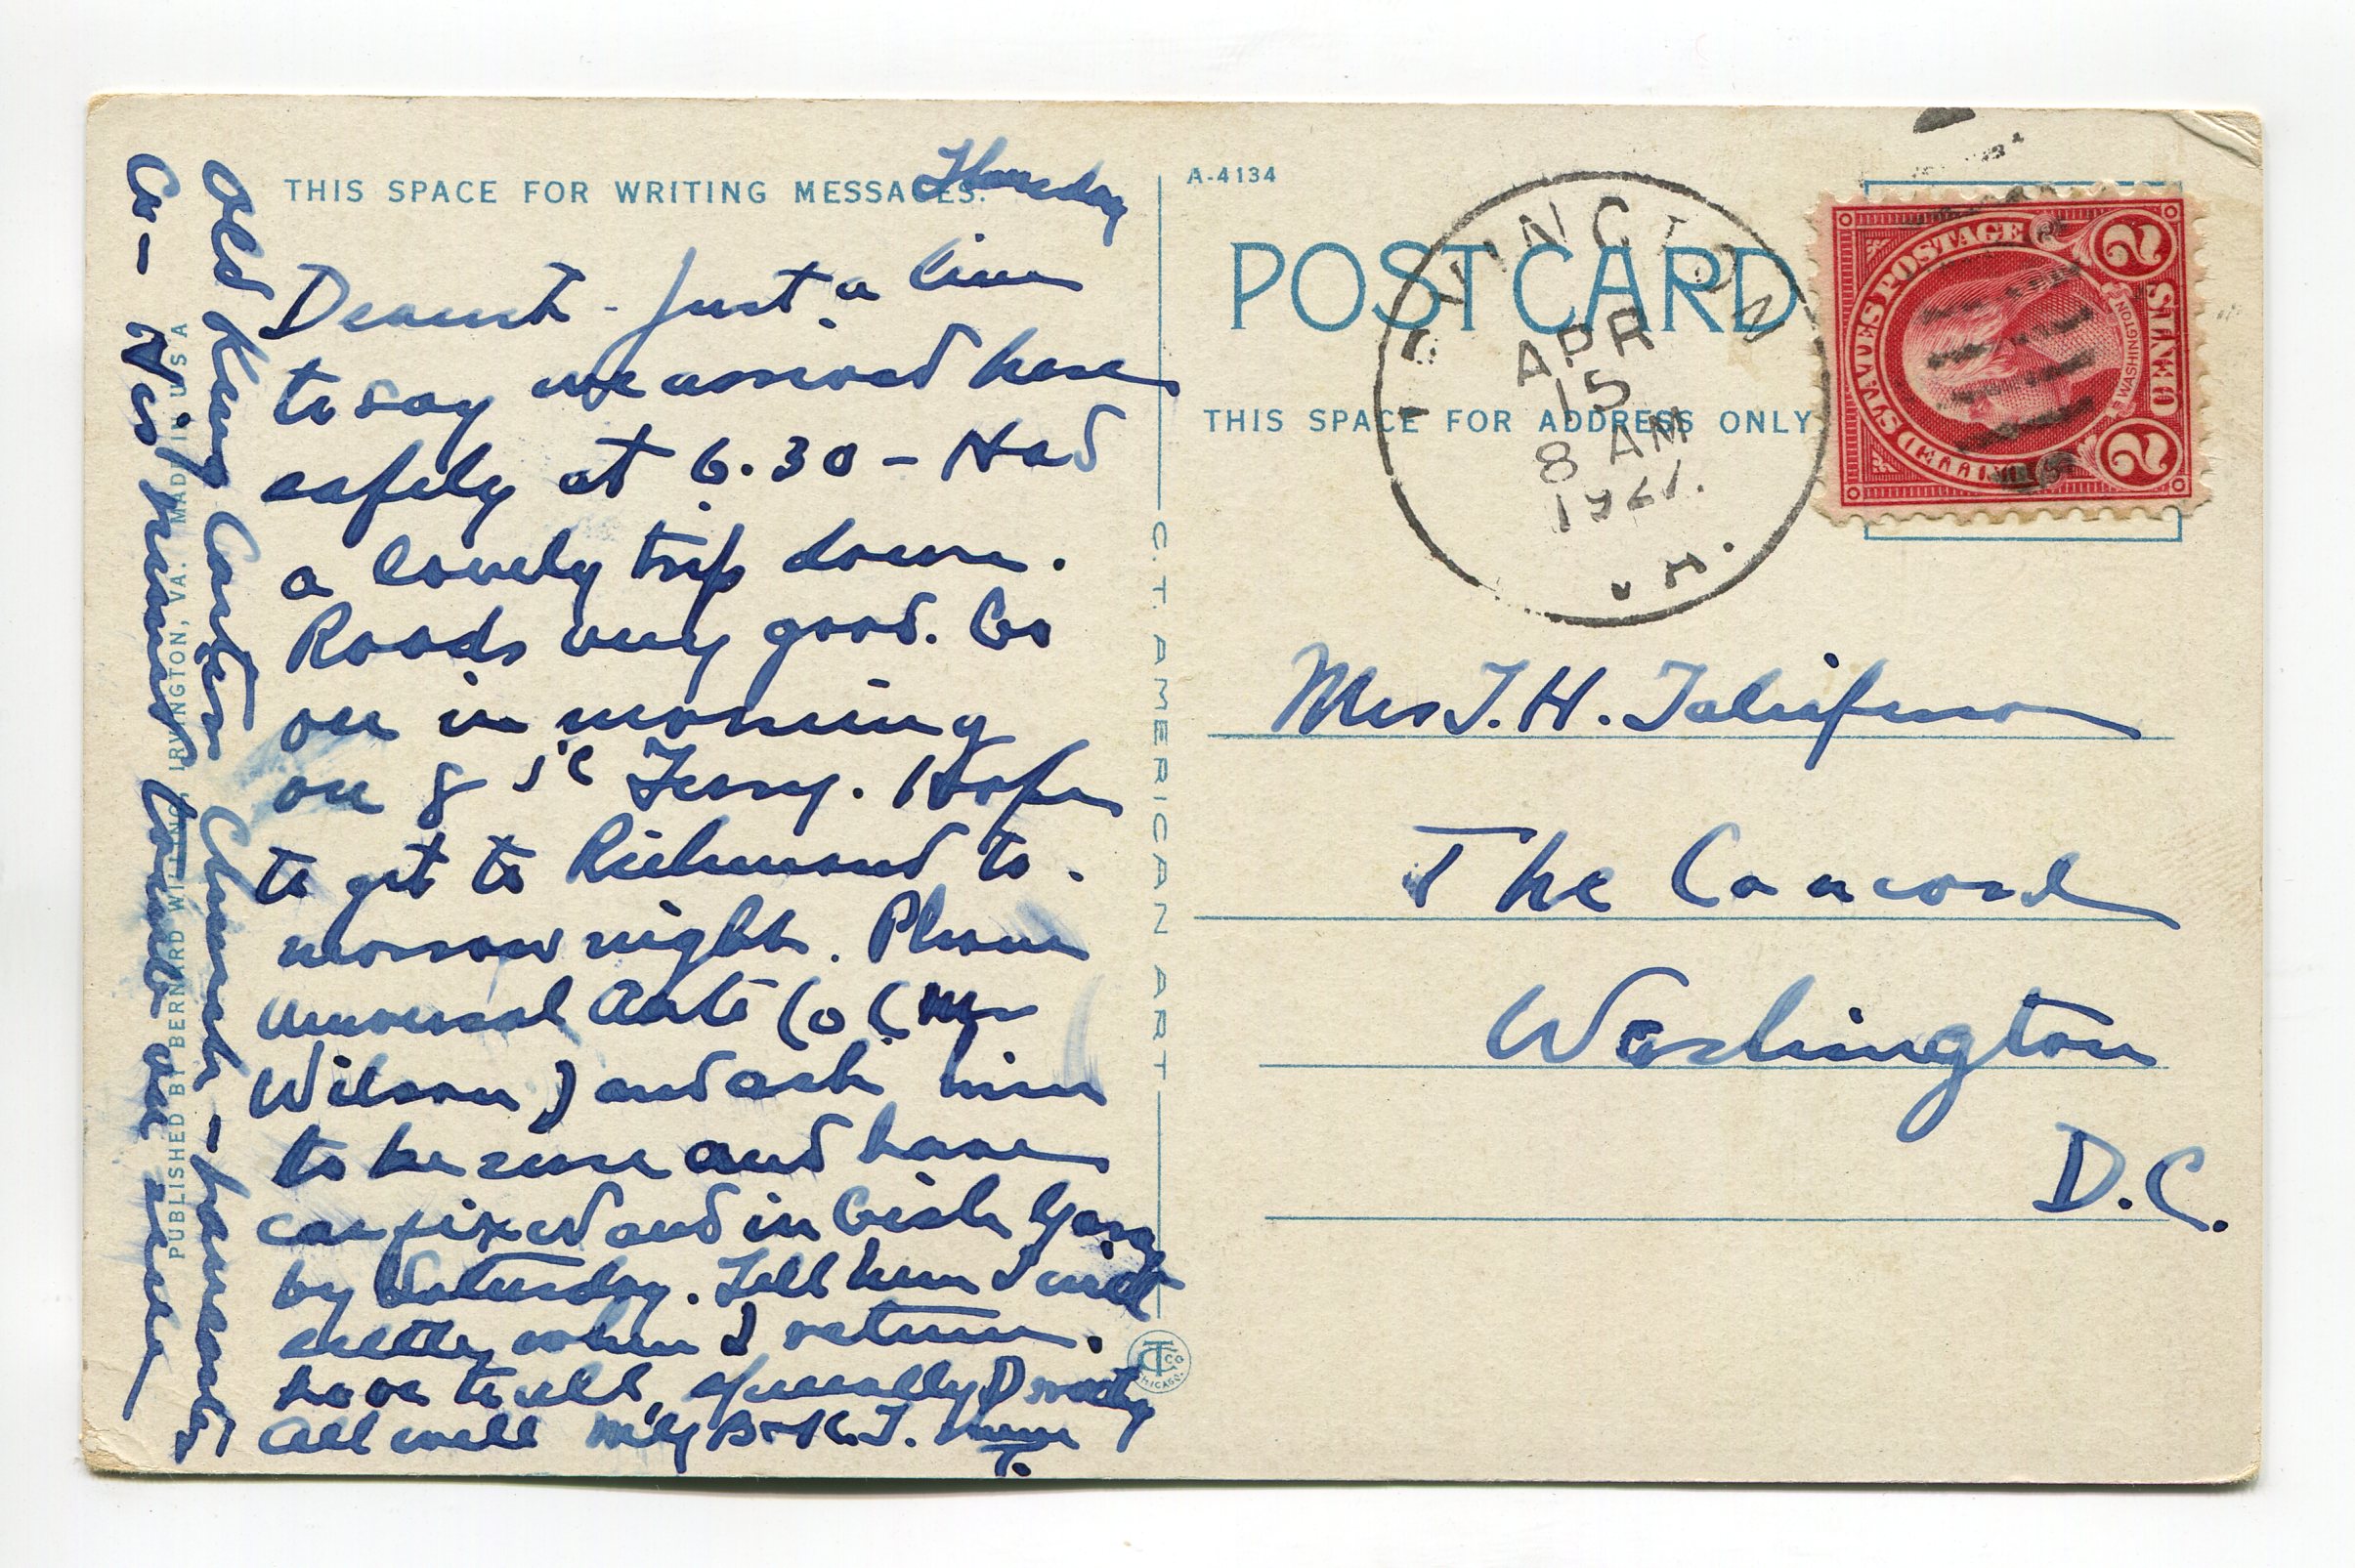 Thursday
THIS SPACE FOR WRITING MESSAGES.
Dearest - Just a line
to say we arrived here
safely at 6.30 - Had
a lovely trip down.
Roads very good. Go
on in morning
on 8 Ferry. Hope
to get to Richmond to-
morrow night. Phone
Universal Auto Co (Mr
Wilson) and ask him
to be sure and have
car fixed and in
by Saturday. Tell him I will
settle when I return.
Love to all, especially
All well
Old King Carter Church -
Co - His
PUBLISHED BY BERNARD WILLING, IRVINGTON, VA. MADE IN U S A
C. T. AMERICAN ART
CTCO
CHICAGO.
A-4134
POST CARD
THIS SPACE FOR ADDRESS ONLY
IRVINGTON
APR
15
8 AM
VA.
UNITED STATES POSTAGE
WASHINGTON
2 CENTS 2
Mrs T. H. Taliaferro
The Concord
Washington
D.C.